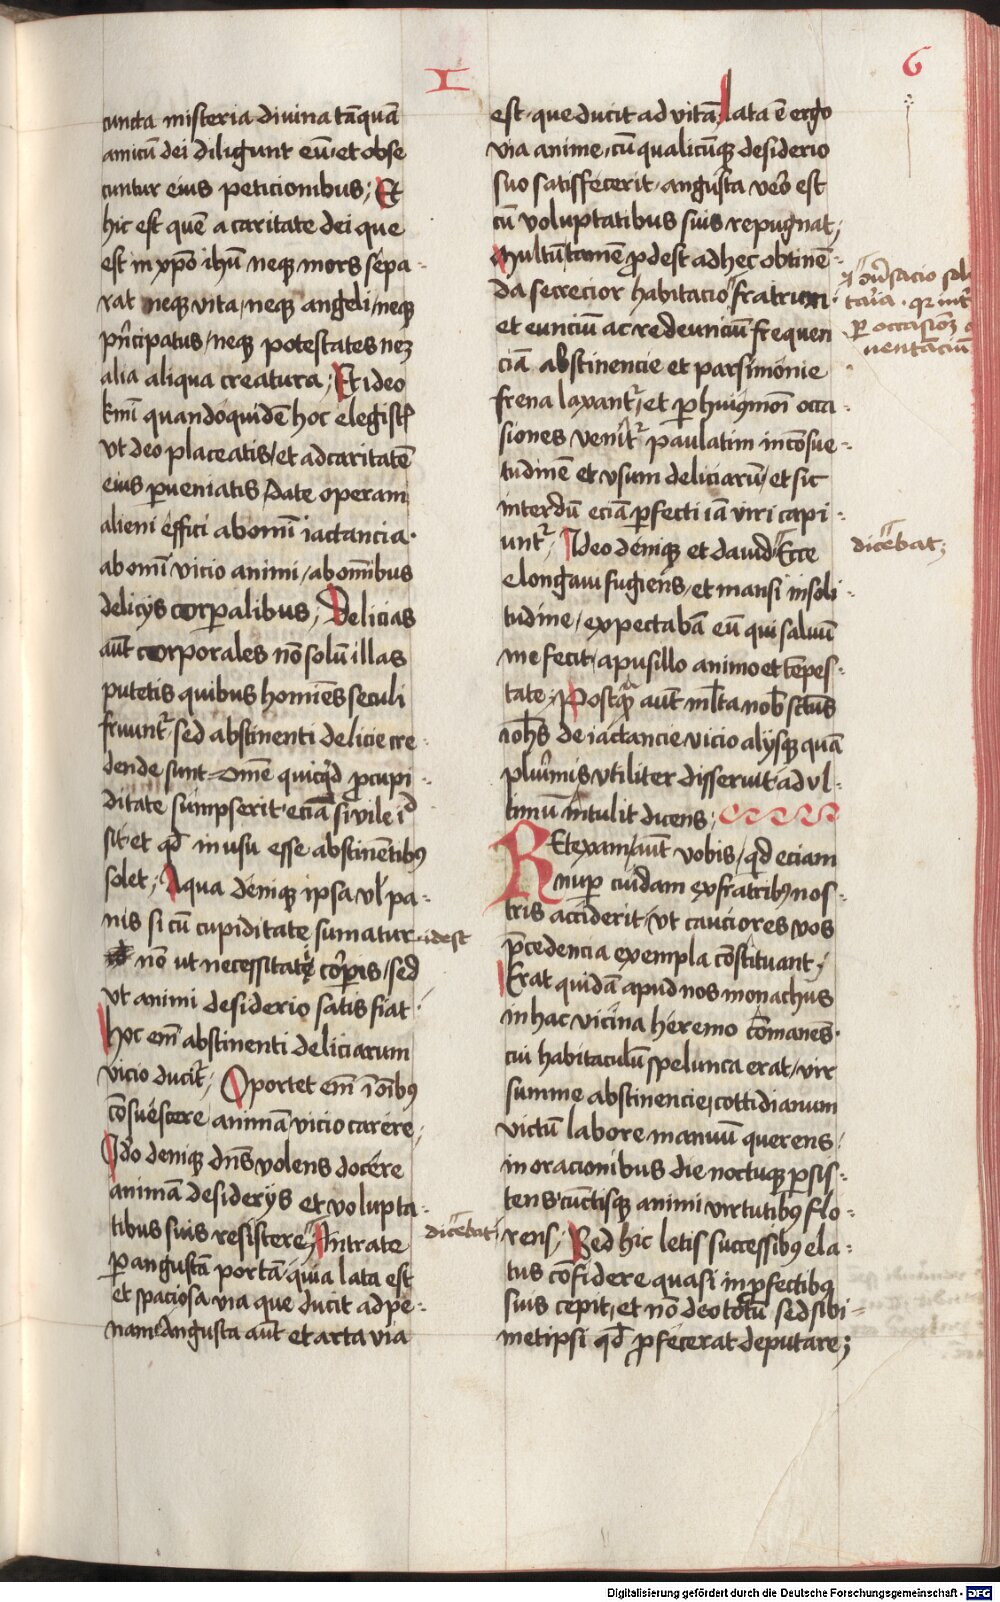 I
6
cuncta misteria divina tāquā
amicū dei diligunt eū et obse
cuntur eius peticionibus; Et
hic est quē a caritate dei que
est in xp̄o ih̄u neq mors sepa-
rat neq vita, neq angeli, neq
pn̄cipatus, neq potestates neq
alia aliqua creatura; Et ideo
quandoquidē hoc elegistis
vt deo placeatis, et ad caritatē
eius ꝑueniatis, date operam
alieni effici ab om̄i iactancia.
ab om̄i vicio animi, ab om̄ibus
delicijs corꝑalibus; Delicias
aūt corporales nō solū illas
putetis quibus homīes seculi
fruunt͛ sed abstinenti delicie cre
dende sunt om̄e quicq̇d ꝓ cupi-
ditate sumpserit eciā si vile id
sit et qd̄ in usu esse abstinētibꝰ
solet; Aqua deniq ipsa vl̓ pa-
nis si cū cupiditate sumatur idest
nō ut necessitati corꝑis, sed
vt animi desiderio satis fiat
hoc em̄ abstinenti deliciarum
vicio ducit͛; Oportet em̄ ī oībꝰ
cōsuescere animā vicio carere;
Ido deniq dn̄s volens docere
animā desiderijs et volupta-
tibus suis resistere dicebat; Intrate
ꝑ angustā portā quia lata est
et spaciosa via que ducit ad pe-
nam Angusta aūt et arta via
est que ducit ad vitā lata ē ergo
via anime, cū qualicūq desiderio
suo satisffecerit, angusta vero est
cū voluptatibus suis repugnat;
Multū tamē ꝓdest ad hec obtinē-
da secrecior habitacio fratrum
et eunciū ac redeunciū frequen
ciā abstinencie et parsimonie
frena laxant͛, et ꝑ huiqmōi occa-
siones venit͛ paulatim in cōsue-
tudinē et vsum deliciarū, et sic
interdū eciā ꝑfecti iā viri capi-
unt͛; Ideo deniq et david Ecce
elongavi fugiens, et mansi in soli-
tudine, expectabā eū qui salvū
me fecit, a pusillo animo et tēpes-
tate; Postq̄ aūt ml̄ta nob̄ sctūs
ioh̄s de iactancie vicio alijsq quā
plurimis vtiliter disseruit ad vl-
timū intulit dicens;
REtexam aūt vobis, qd̄ eciam
nuꝑ cuidam ex fratribꝰ nos-
tris acciderit, vt cauciores vos
p̄cedencia exempla cōstituant;
Erat quidā apud nos monachus
in hac vicina heremo cōmanēs
cui habitaculū spelunca erat, vir
summe abstinencie, cottidianum
victū labore manuū querens
in oracionibus die noctuq ꝑsis-
tens cūctisq animi virtutibꝰ flo-
rens; Sed hic letis successibꝰ ela-
tus cōfidere quasi in ꝓfectibꝰ
suis cepit, et nō deo totū sed sibi-
metipsi qd̄ ꝓfecerat deputare;
dicebat;
Digitalisierung gefördert durch die Deutsche Forschungsgemeinschaft - DFG